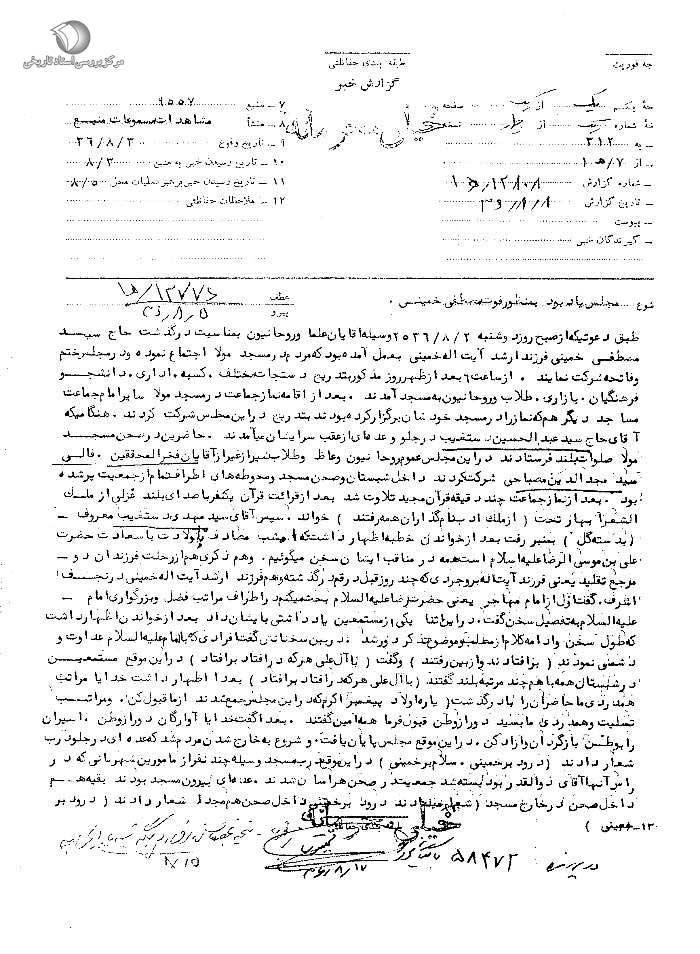 مرکز بررسی اسناد تاریخی
طبقه بندی حفاظتی
گزارش خبر
خیلی محرمانه
۷ – منبع ۹۵۵۷
۸ – منشأ مشاهدات و مسموعات منبع
۹ – تاریخ وقوع ۳۶/۸/۲
۱۰ – تاریخ رسیدن خبر به منبع ۸/۳
۱۱ – تاریخ رسیدن خبر برهبر عملیات محل ۸/۵
۱۲ – ملاحظات حفاظتی
به ۳۱۲
از ۷/ه‍ ۱
شماره گزارش
تاریخ گزارش
پیوست
گیرندگان خبر
موضوع – مجلس یاد بود بمنظور فوت مصطفی خمینی
عطف
پیرو
طبق دعوتیکه از صبح روز دوشنبه ۲۵۳۶/۸/۲ وسیله آقایان علما و روحانیون بمناسبت درگذشت حاج سید
مصطفی خمینی فرزند ارشد آیت اله خمینی بعمل آمده بود که مردم در مسجد مولا اجتماع نموده و در مجلس ختم
و فاتحه شرکت نمایند . از ساعت ۶ بعد از ظهر روز مذکور بتدریج دستجات مختلف . کسبه . اداری . دانشجو
فرهنگیان . بازاری . طلاب و روحانیون به مسجد آمدند . بعد از اقامه نماز جماعت در مسجد مولا سایر امام جماعت
مساجد دیگر هم که نماز را در مسجد خودشان برگزار کرده بودند بتدریج در این مجلس شرکت کردند . هنگامیکه
آقای حاج سید عبدالحسین دستغیب در جلو و عده ای از عقب سر ایشان میآمدند . حاضرین در صحن مسجد
مولا صلوات بلند فرستادند در این مجلس عموم روحانیون وعاظ و طلاب شیراز غیر از آقایان فخر المحققین . فالی
سید مجدالدین مصباحی شرکت کردند . داخل شبستان و صحن مسجد و محوطه های اطراف تمام از جمعیت پر شده
بود . بعد از نماز جماعت چند دقیقه قرآن مجید تلاوت شد بعد از قرائت قرآن یکنفر با صدای بلند غزلی از ملک
الشعرا بهار تحت ( از ملک ادب نام گذاران همه رفتند ) خواند . سپس آقای سید مهدی دستغیب معروف
( بدسته گل ) بمنبر رفت بعد از خواندن خطبه اظهار داشت که امشب مصادف با ولادت با سعادت حضرت
علی بن موسی الرضا علیه السلام است همه در مناقب ایشان سخن میگوئیم . وهم ذکری هم از رحلت فرزندان دو
مرجع تقلید یعنی فرزند آیت اله بروجردی که چند روز قبل در قم درگذشته و هم فرزند ارشد آیت اله خمینی در نجف
اشرف . گفت اول از امام مهاجر یعنی حضرت رضا علیه السلام بحث میکنم در اطراف مراتب فضل و بزرگواری امام
علیه السلام به تفصیل سخن گفت . در این اثنا یکی از مستمعین یادداشتی بایشان داد بعد از خواندن اظهار داشت
که طول سخن و ادامه کلام از مطلب و موضوع تذکر دور شد در بین سخنانش گفت افرادی که با امام علیه السلام عداوت و
دشمنی نمودند ( برافتادند و از بین رفتند ) و گفت ( با آل علی هر که در افتاد بر افتاد ) در این موقع مستمعین
در شبستان همه با هم چند مرتبه بلند گفتند ( با آل علی هر که در افتاد بر افتاد ) بعدا اظهار داشت خدایا مراتب
همدردی ما حاضران را با درگذشت ( پاره اولاد پیغمبر اکرم که در این مجلس جمع شدند از ما قبول کن . و مراتب
تسلیت و همدردی ما بسید دور از وطن قبول فرما همه آمین گفتند . بعدا گفت خدایا آوارگان دور از وطن . اسیران
را بوطنشان بازگردان و آزاد کن . در این موقع مجلس پایان یافت . و شروع به خارج شدن مردم شد که عده ای در جلو درب
شعار دادند ( درود بر خمینی . سلام بر خمینی ) در این موقع درب مسجد وسیله چند نفر از مامورین شهربانی که در
راس آنها آقای ذوالقدر بود بسته شد جمعیت در صحن هراسان شدند . عده ای بیرون مسجد بودند بقیه هم
داخل صحن . در خارج مسجد ( شعار میدادند درود بر خمینی داخل صحن هم مجددا شعار دادند ( درود بر
خمینی )
خیلی محرمانه
در پرونده ۵۸۴۷۲ بایگانی گردد
۳۶/۸/۱۷
۸/۱۵